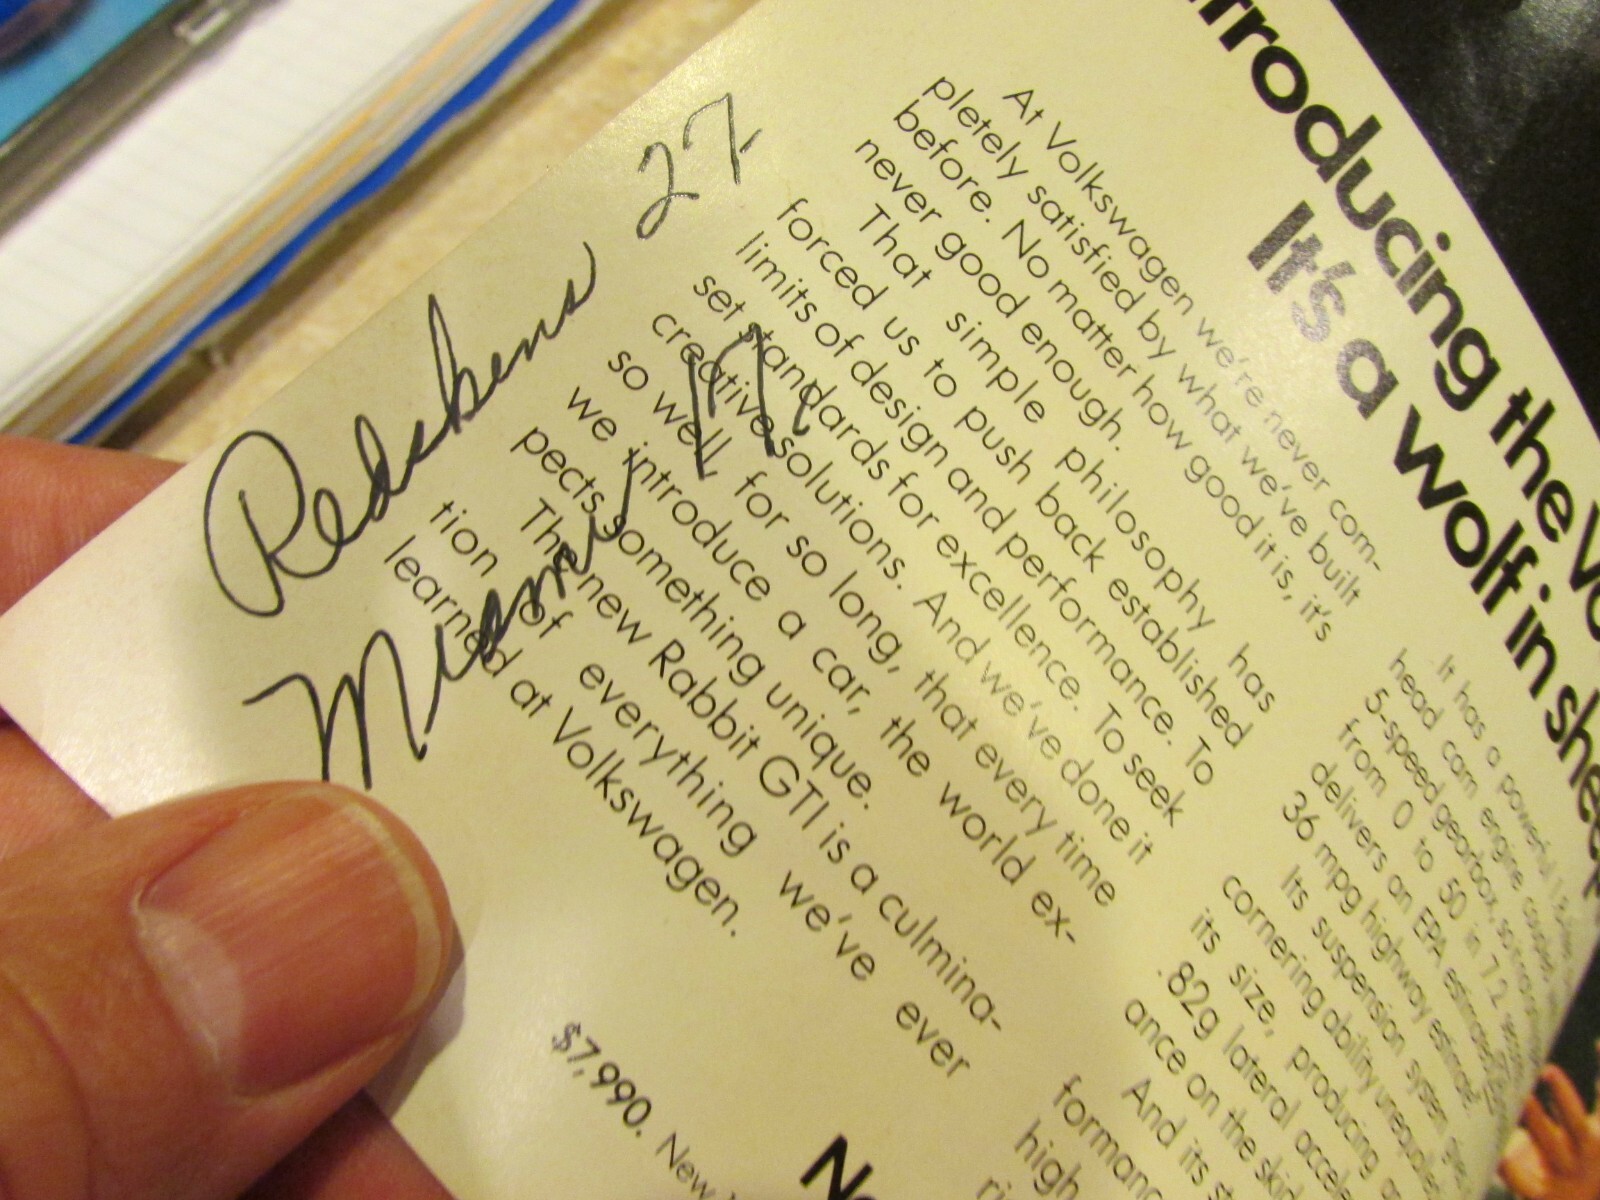 Redskens 27
Miami 17
troducing the
It's a wolf in sheep
At Volkswagen we're never com-
pletely satisfied by what we've built
before. No matter how good it is, it's
never good enough.
That simple philosophy has
forced us to push back established
limits of design and performance. To
set standards for excellence. To seek
creative solutions. And we've done it
so well, for so long, that every time
we introduce a car, the world ex-
pects something unique.
The new Rabbit GTI is a culmina-
tion of everything we've ever
learned at Volkswagen.
$7,990. New
It has a powerful
head cam engine coupled
5-speed gearbox, so
from 0 to 50 in 7.2
delivers an EPA estimated
36 mpg highway estimate.
Its suspension system
cornering ability unequaled
its size, producing
.82g lateral accele
ance on the skid
And its
formanc
high